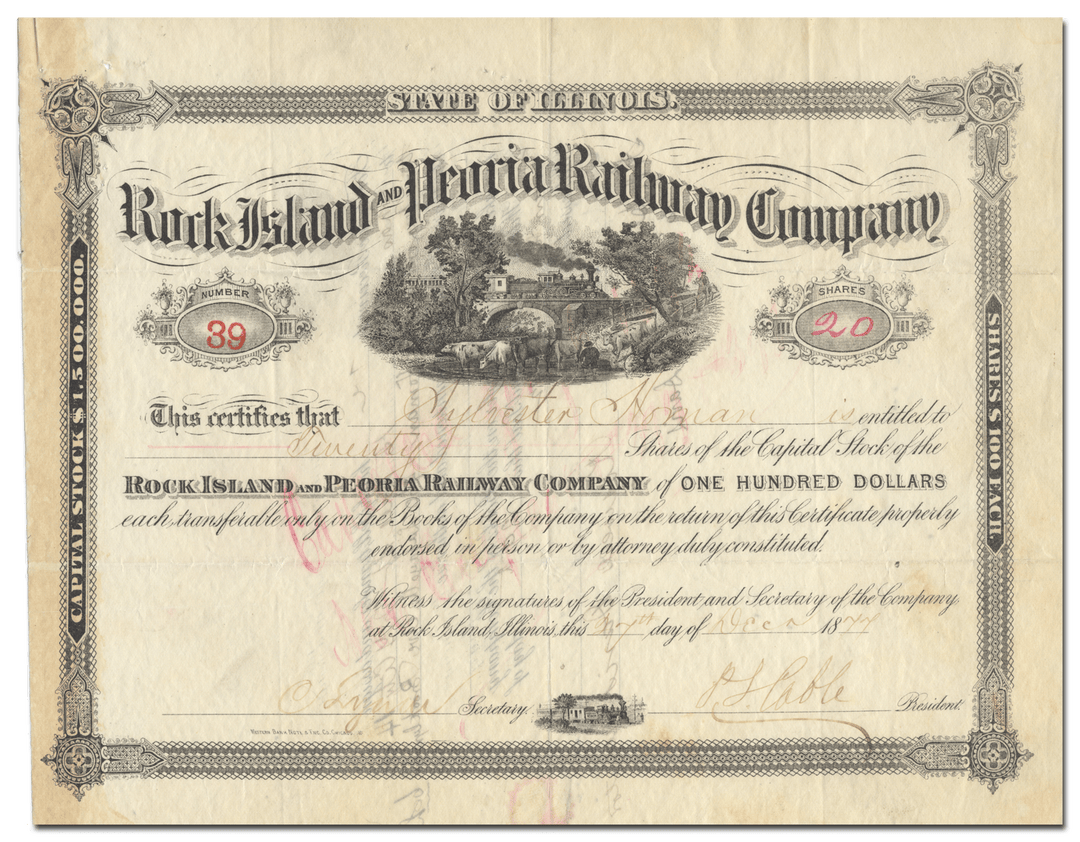 STATE OF ILLINOIS.
ROCK ISLAND AND PEORIA RAILWAY COMPANY
NUMBER
39
SHARES
20
CAPITAL STOCK $1,500,000.
SHARES $100 EACH.
This certifies that Sylvester is entitled to
Twenty Shares of the Capital Stock of the
ROCK ISLAND AND PEORIA RAILWAY COMPANY of ONE HUNDRED DOLLARS
each transferable only on the Books of the Company on the return of this Certificate properly
endorsed in person or by attorney duly constituted.
Witness the signatures of the President and Secretary of the Company
at Rock Island, Illinois, this 27th day of Dec 1877
Secretary. Cable President.
WESTERN BANK NOTE & ENG. CO. CHICAGO